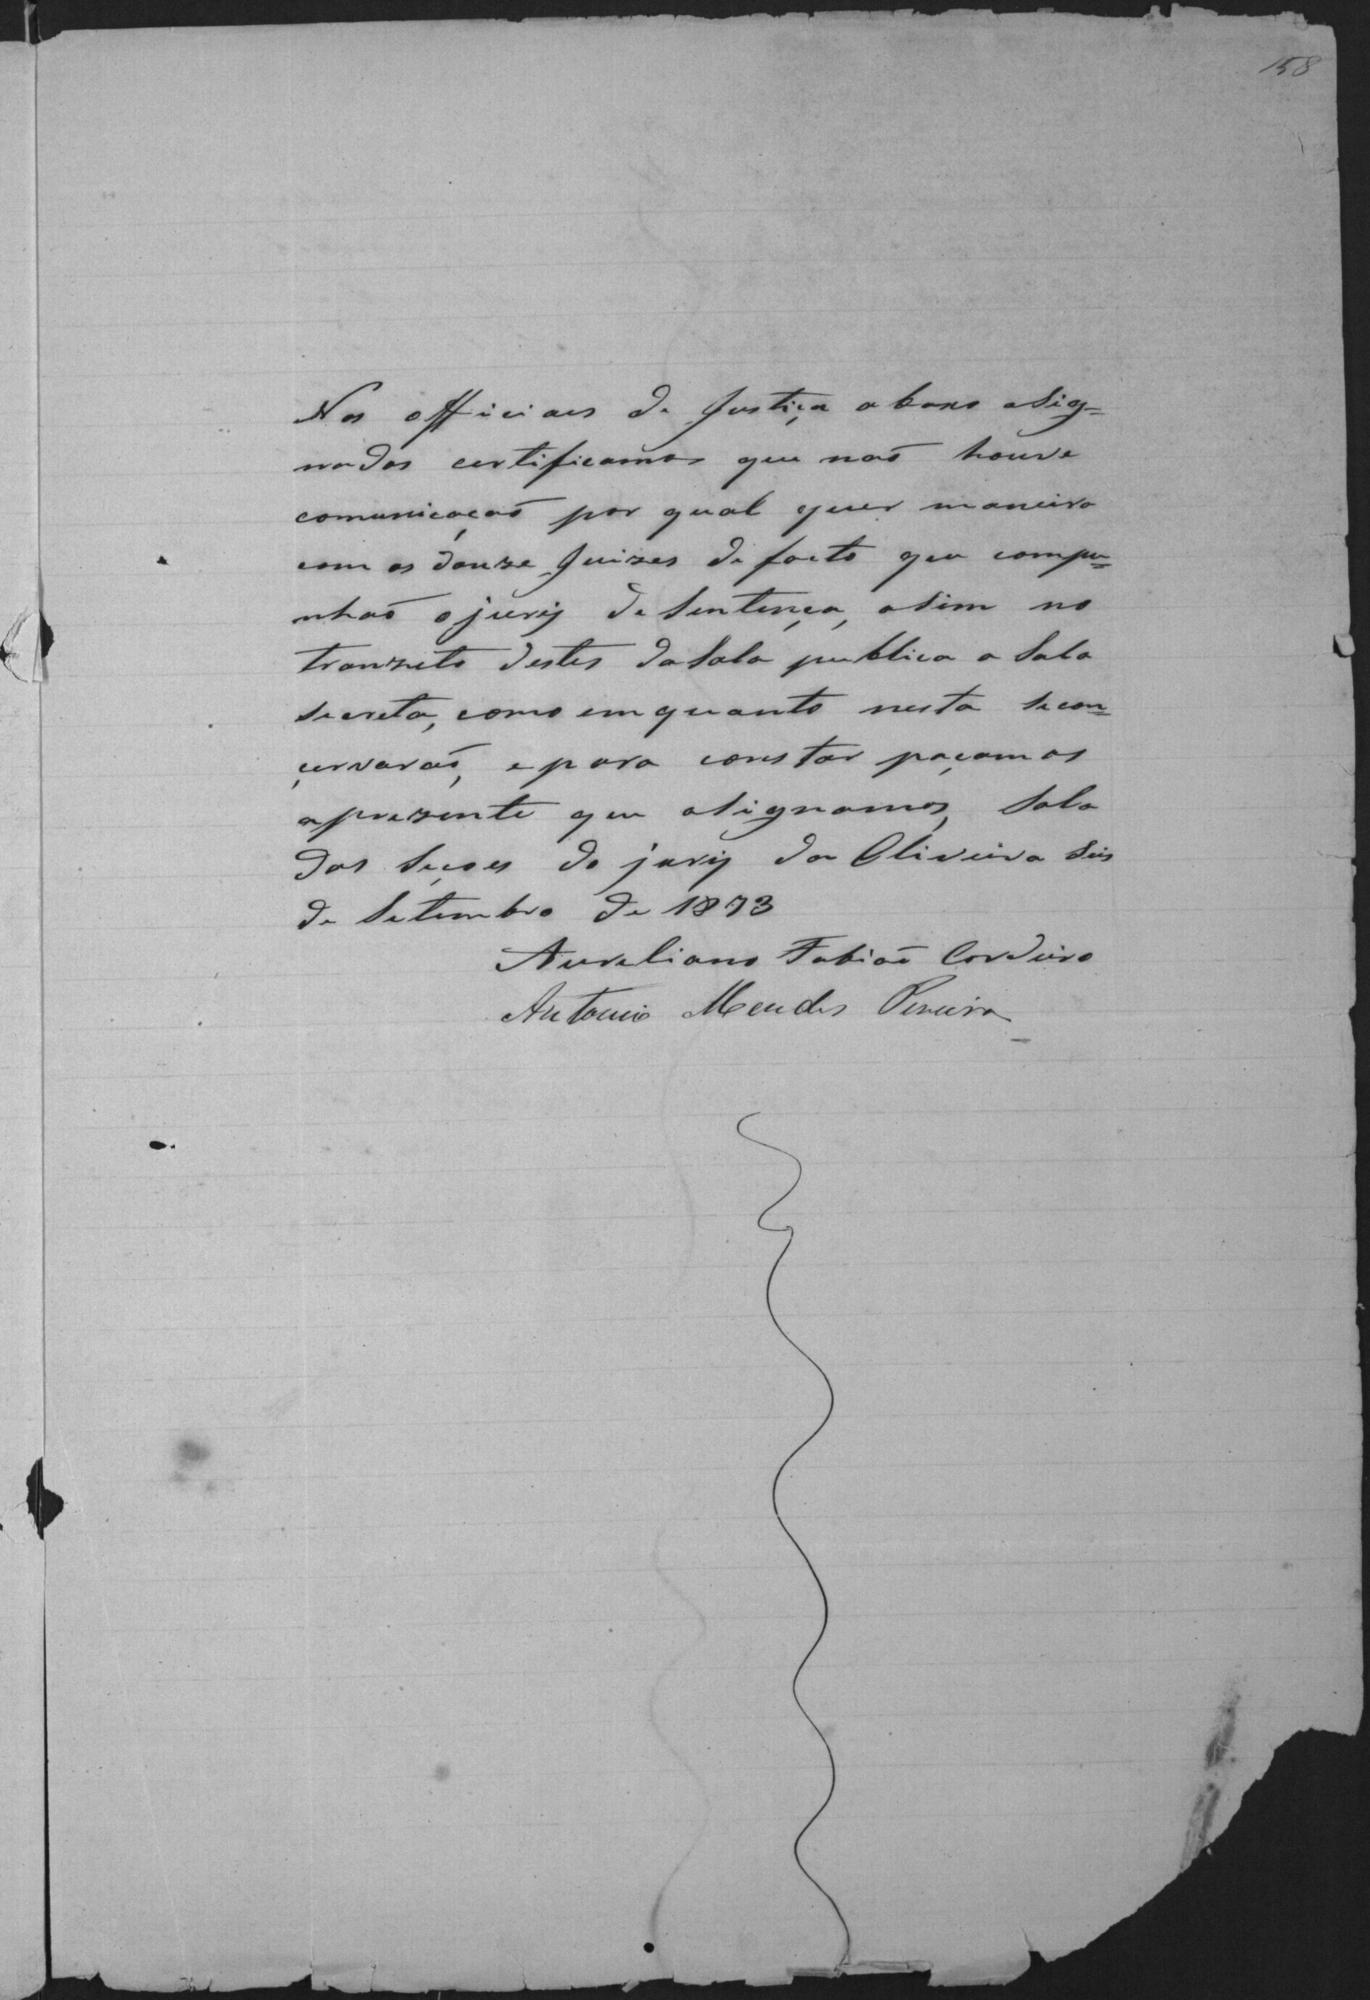 158
Nos officiaes de Justiça abaxo asig=
nados certificamos que naõ houve
comunicaçaõ por qual quer maneira
com os douze Juizes de facto que compu=
nhaõ o jurij de Sentença, asim no
tranzito destes da Sala publica a Sala
secreta, como em quanto nesta se con=
çervaraõ, e para constar paçamos
aprezente que asignamos, Sala
das Seçoes do jurij da Oliveira seis
de Setembro de 1873
Aureliano Fabiaõ Cordeiro
Antonio Mendes Pereira